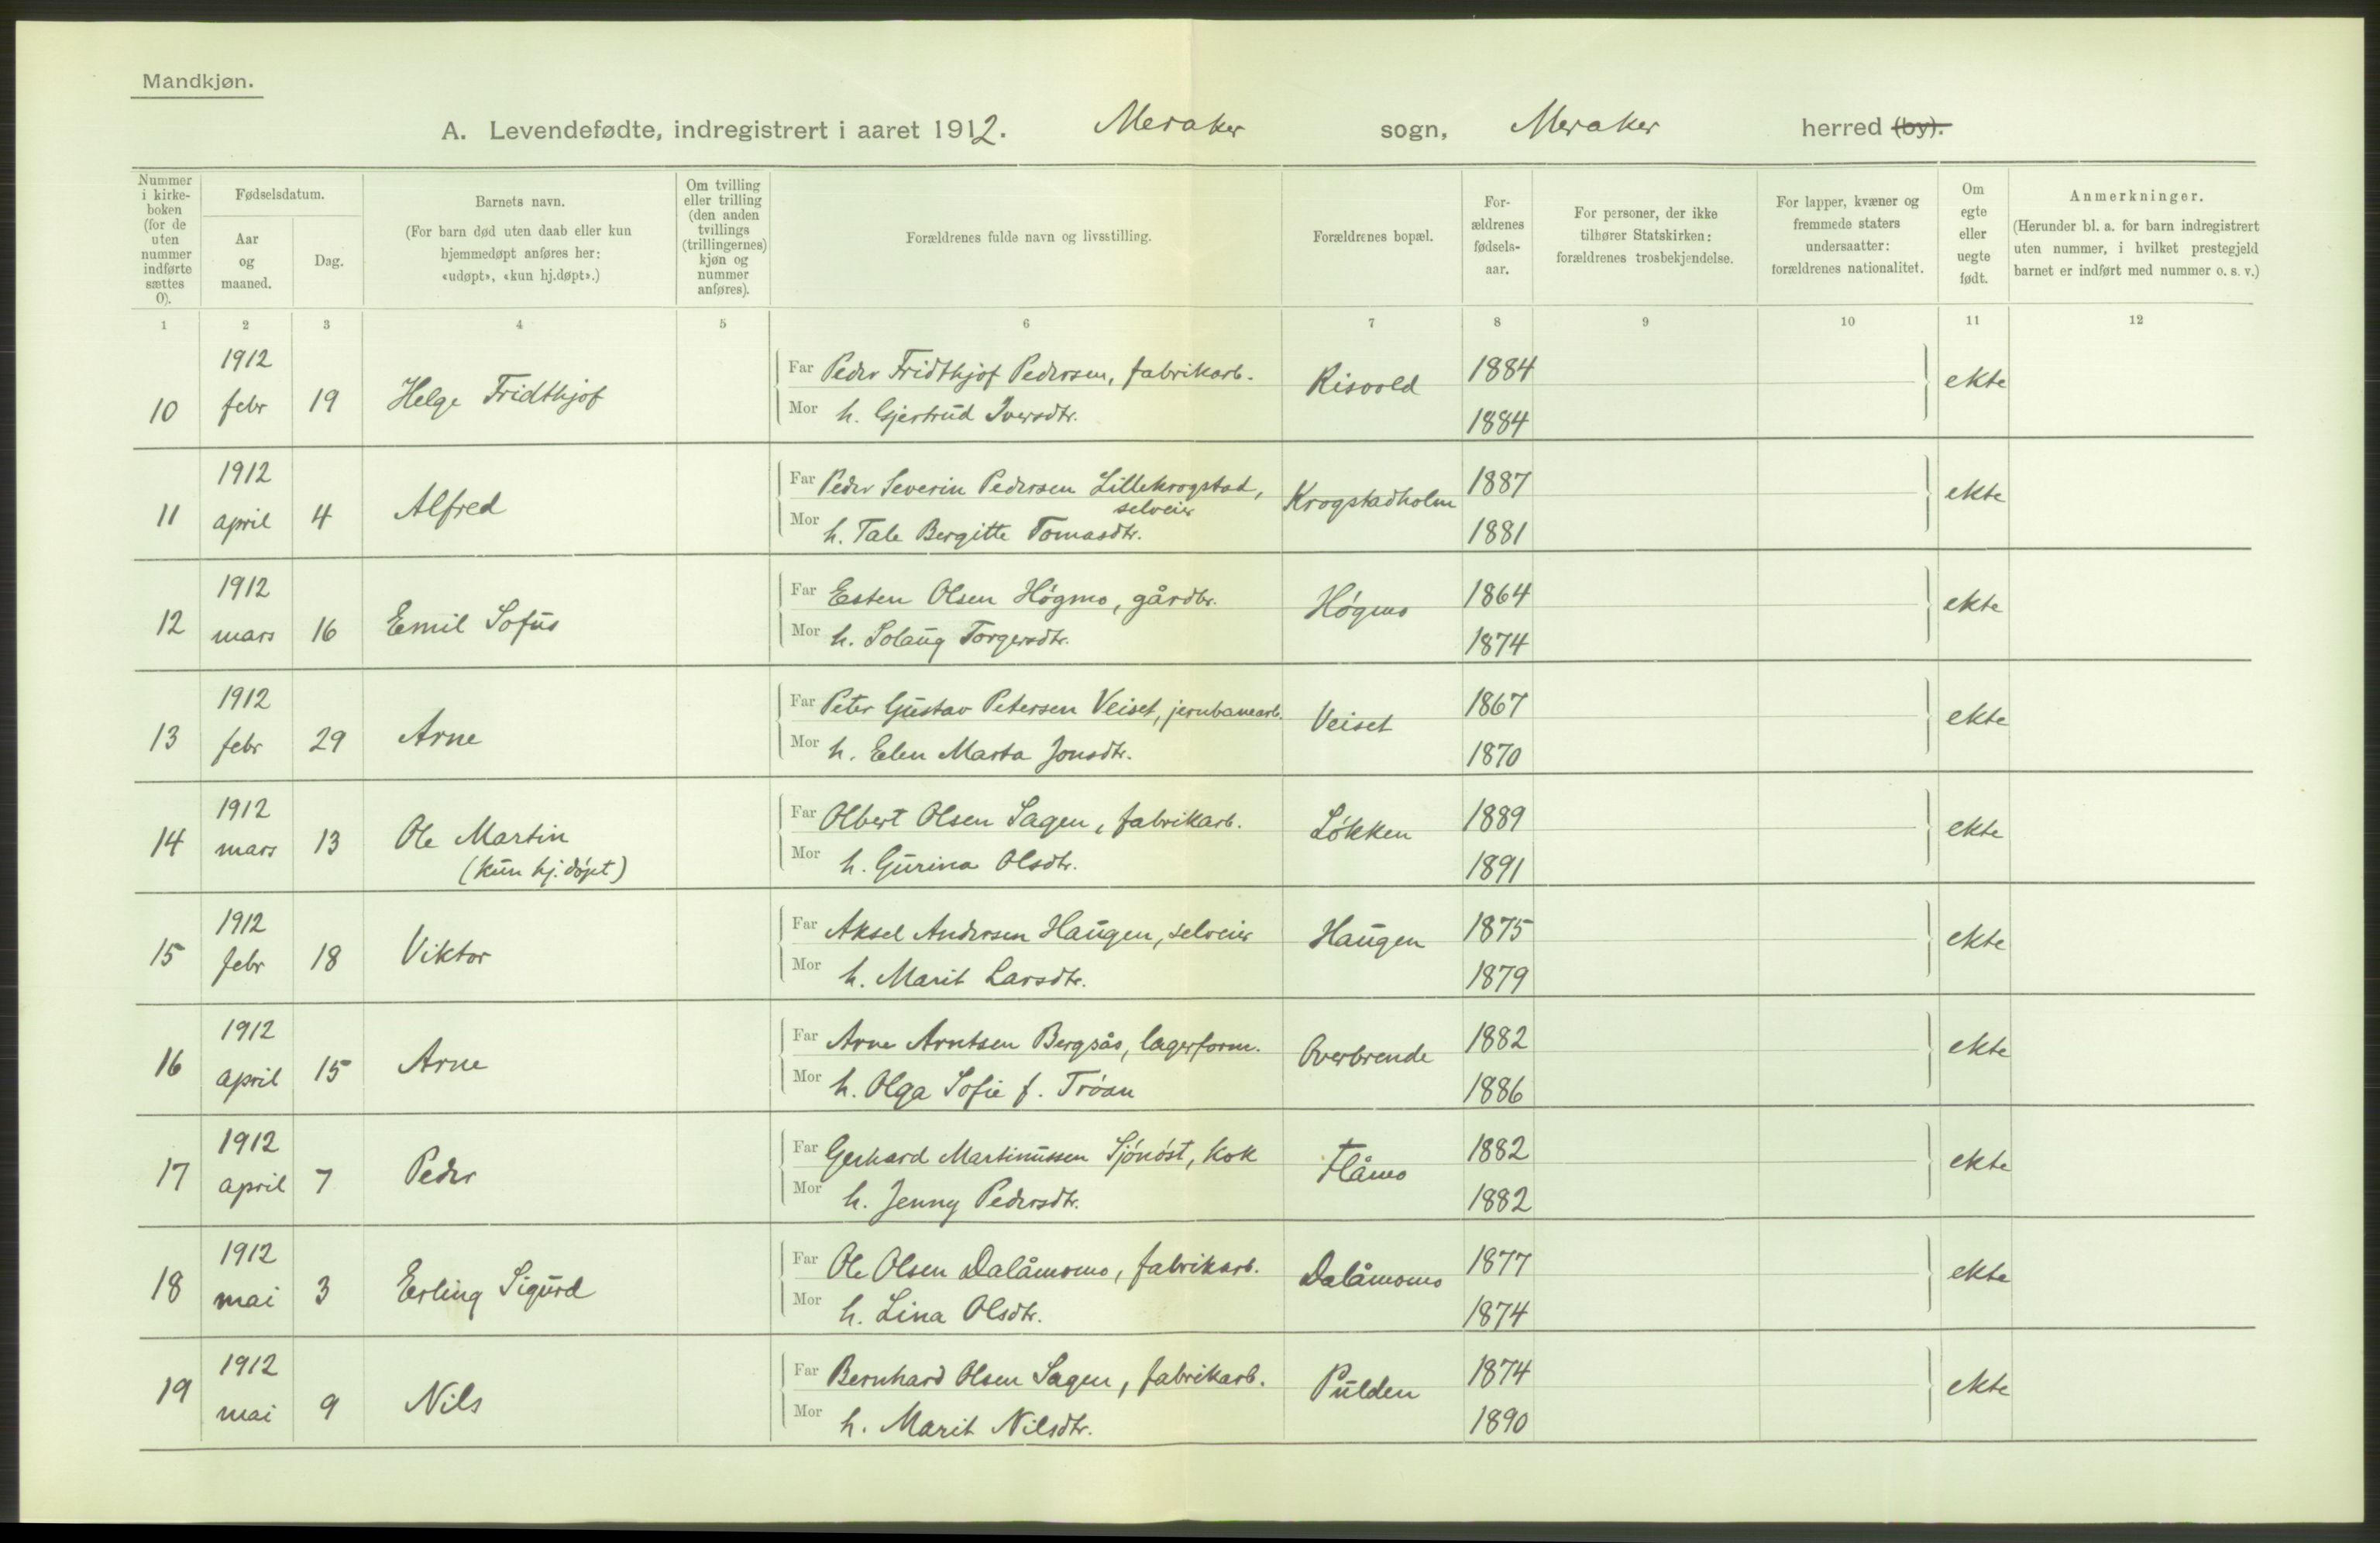 Mandkjøn.
A. Levendefødte, indregistrert i aaret 1912. Meraker sogn, Meraker herred (by).
Nummer i kirke-boken (for de uten nummer indførte sættes 0).
Fødselsdatum.
Aar og maaned.
Dag.
Barnets navn.
(For barn død uten daab eller kun hjemmedøpt anføres her: «udøpt», «kun hj.døpt».)
Om tvilling eller trilling (den anden tvillings (trillingernes) kjøn og nummer anføres).
Forældrenes fulde navn og livsstilling.
Forældrenes bopæl.
For-ældrenes fødsels-aar.
For personer, der ikke tilhører Statskirken: forældrenes trosbekjendelse.
For lapper, kvæner og fremmede staters undersaatter: forældrenes nationalitet.
Om egte eller uegte født.
Anmerkninger.
(Herunder bl. a. for barn indregistrert uten nummer, i hvilket prestegjeld barnet er indført med nummer o. s. v.)
1 2 3 4 5 6 7 8 9 10 11 12
1912 Far Peder Fridthjof Pedersen, fabrikarb. Risvold 1884 ekte
10 febr 19 Helge Fridthjof Mor h. Gjertrud Iversdtr. 1884
1912 Far Peder Severin Pedersen Lillekrogstad, Krogstadholm 1887 ekte
selveier
11 april 4 Alfred Mor h. Tale Bergitte Tomasdtr. 1881
1912 Far Esten Olsen Høgmo, gårdbr. Høgmo 1864 ekte
12 mars 16 Emil Sofus Mor h. Solaug Torgersdtr. 1874
1912 Far Peter Gustav Petersen Veiset, jernbanearb. Veiset 1867 ekte
13 febr 29 Arne Mor h. Elen Marta Jonsdtr. 1870
1912 Far Olbert Olsen Sagen, fabrikarb. Løkken 1889 ekte
14 mars 13 Ole Martin Mor h. Gurina Olsdtr. 1891
(kun hj.døpt)
1912 Far Aksel Andersen Haugen, selveier Haugen 1875 ekte
15 febr 18 Viktor Mor h. Marit Larsdtr. 1879
1912 Far Arne Arntsen Bergsås, lagerform. Overbrende 1882 ekte
16 april 15 Arne Mor h. Olga Sofie f. Trøan 1886
1912 Far Gerhard Martinussen Sjønøst, kok Flåmo 1882 ekte
17 april 7 Peder Mor h. Jenny Pedersdtr. 1882
1912 Far Ole Olsen Dalåmomo, fabrikarb. Dalåmomo 1877 ekte
18 mai 3 Erling Sigurd Mor h. Lina Olsdtr. 1874
1912 Far Bernhard Olsen Sagen, fabrikarb. Pulden 1874 ekte
19 mai 9 Nils Mor h. Marit Nilsdtr. 1890